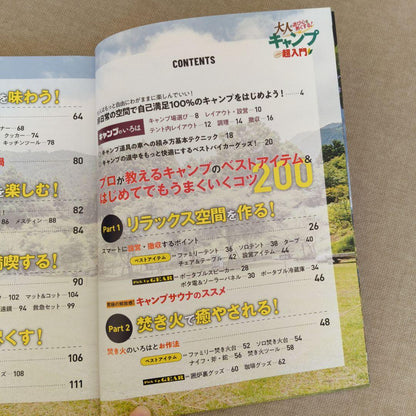 を味わう！
64
ナー 68
クッカー 74
キッチンツール 76
鍋
を楽しむ！
82
86 メスティン 88
84
満喫する！
90
102 マット&コット 104
94 救急セット 99
106
108
111
大人の
キャンプ
超入門
CONTENTS
もっと自由にわがままに楽しんでいい！
日常の空間で自己満足100%のキャンプをはじめよう！ 4
キャンプのいろは
キャンプ場選び 8 レイアウト・設営 10
テント内レイアウト 12 調理 14 撤収 16
キャンプ道具の車への積み方基本テクニック 18
キャンプの道中をもっと快適にするベストバイカーグッズ！ 20
プロが教えるキャンプのベストアイテム&
はじめてでもうまくいくコツ200
Part 1
リラックス空間を作る！
26
スマートに設営・撤収するポイント
34
ベストアイテム
ファミリーテント 36 ソロテント 38 タープ 40
チェア&テーブル 42 設営アイテム 44
Pick Up GEAR
ポータブルスピーカー 28 ポータブル冷蔵庫 34
ポタ電&ソーラーパネル 30
キャンプサウナのススメ
46
Part 2
焚き火で癒やされる！
48
焚き火のいろはとお作法
54
ベストアイテム
ファミリー焚き火台 52 ソロ焚き火台 54
ナイフ・斧・鉈 56 焚き火ツール 58
Pick Up GEAR
囲炉裏グッズ 60 珈琲グッズ 62